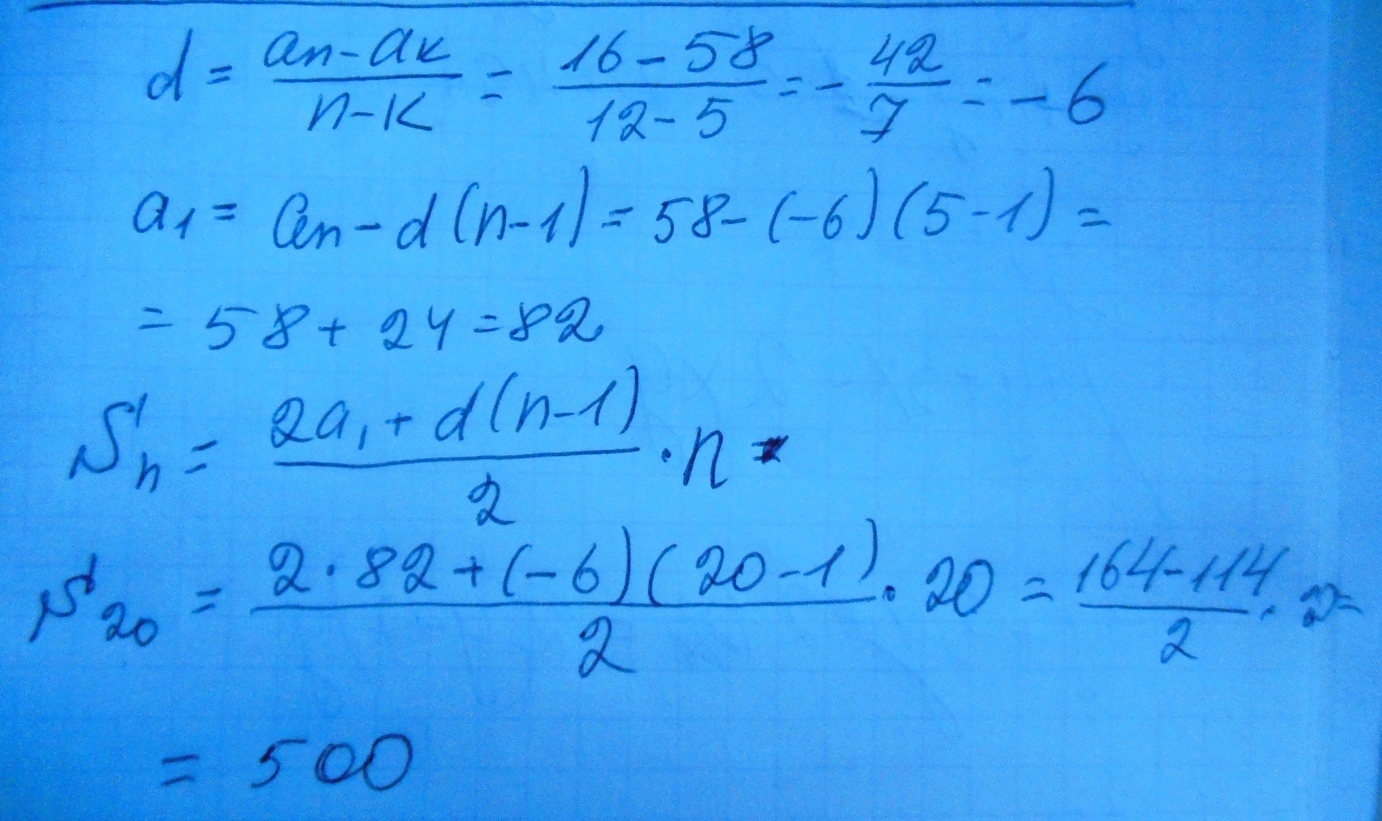 d = (an - ak)/(n - k) = (16 - 58)/(12 - 5) = - 42/7 = - 6
a₁ = an - d(n-1) = 58 - (-6)(5-1) =
= 58 + 24 = 82
Sn = (2a₁ + d(n-1))/2 · n
S₂₀ = (2·82 + (-6)(20-1))/2 · 20 = (164-114)/2 ·
= 500